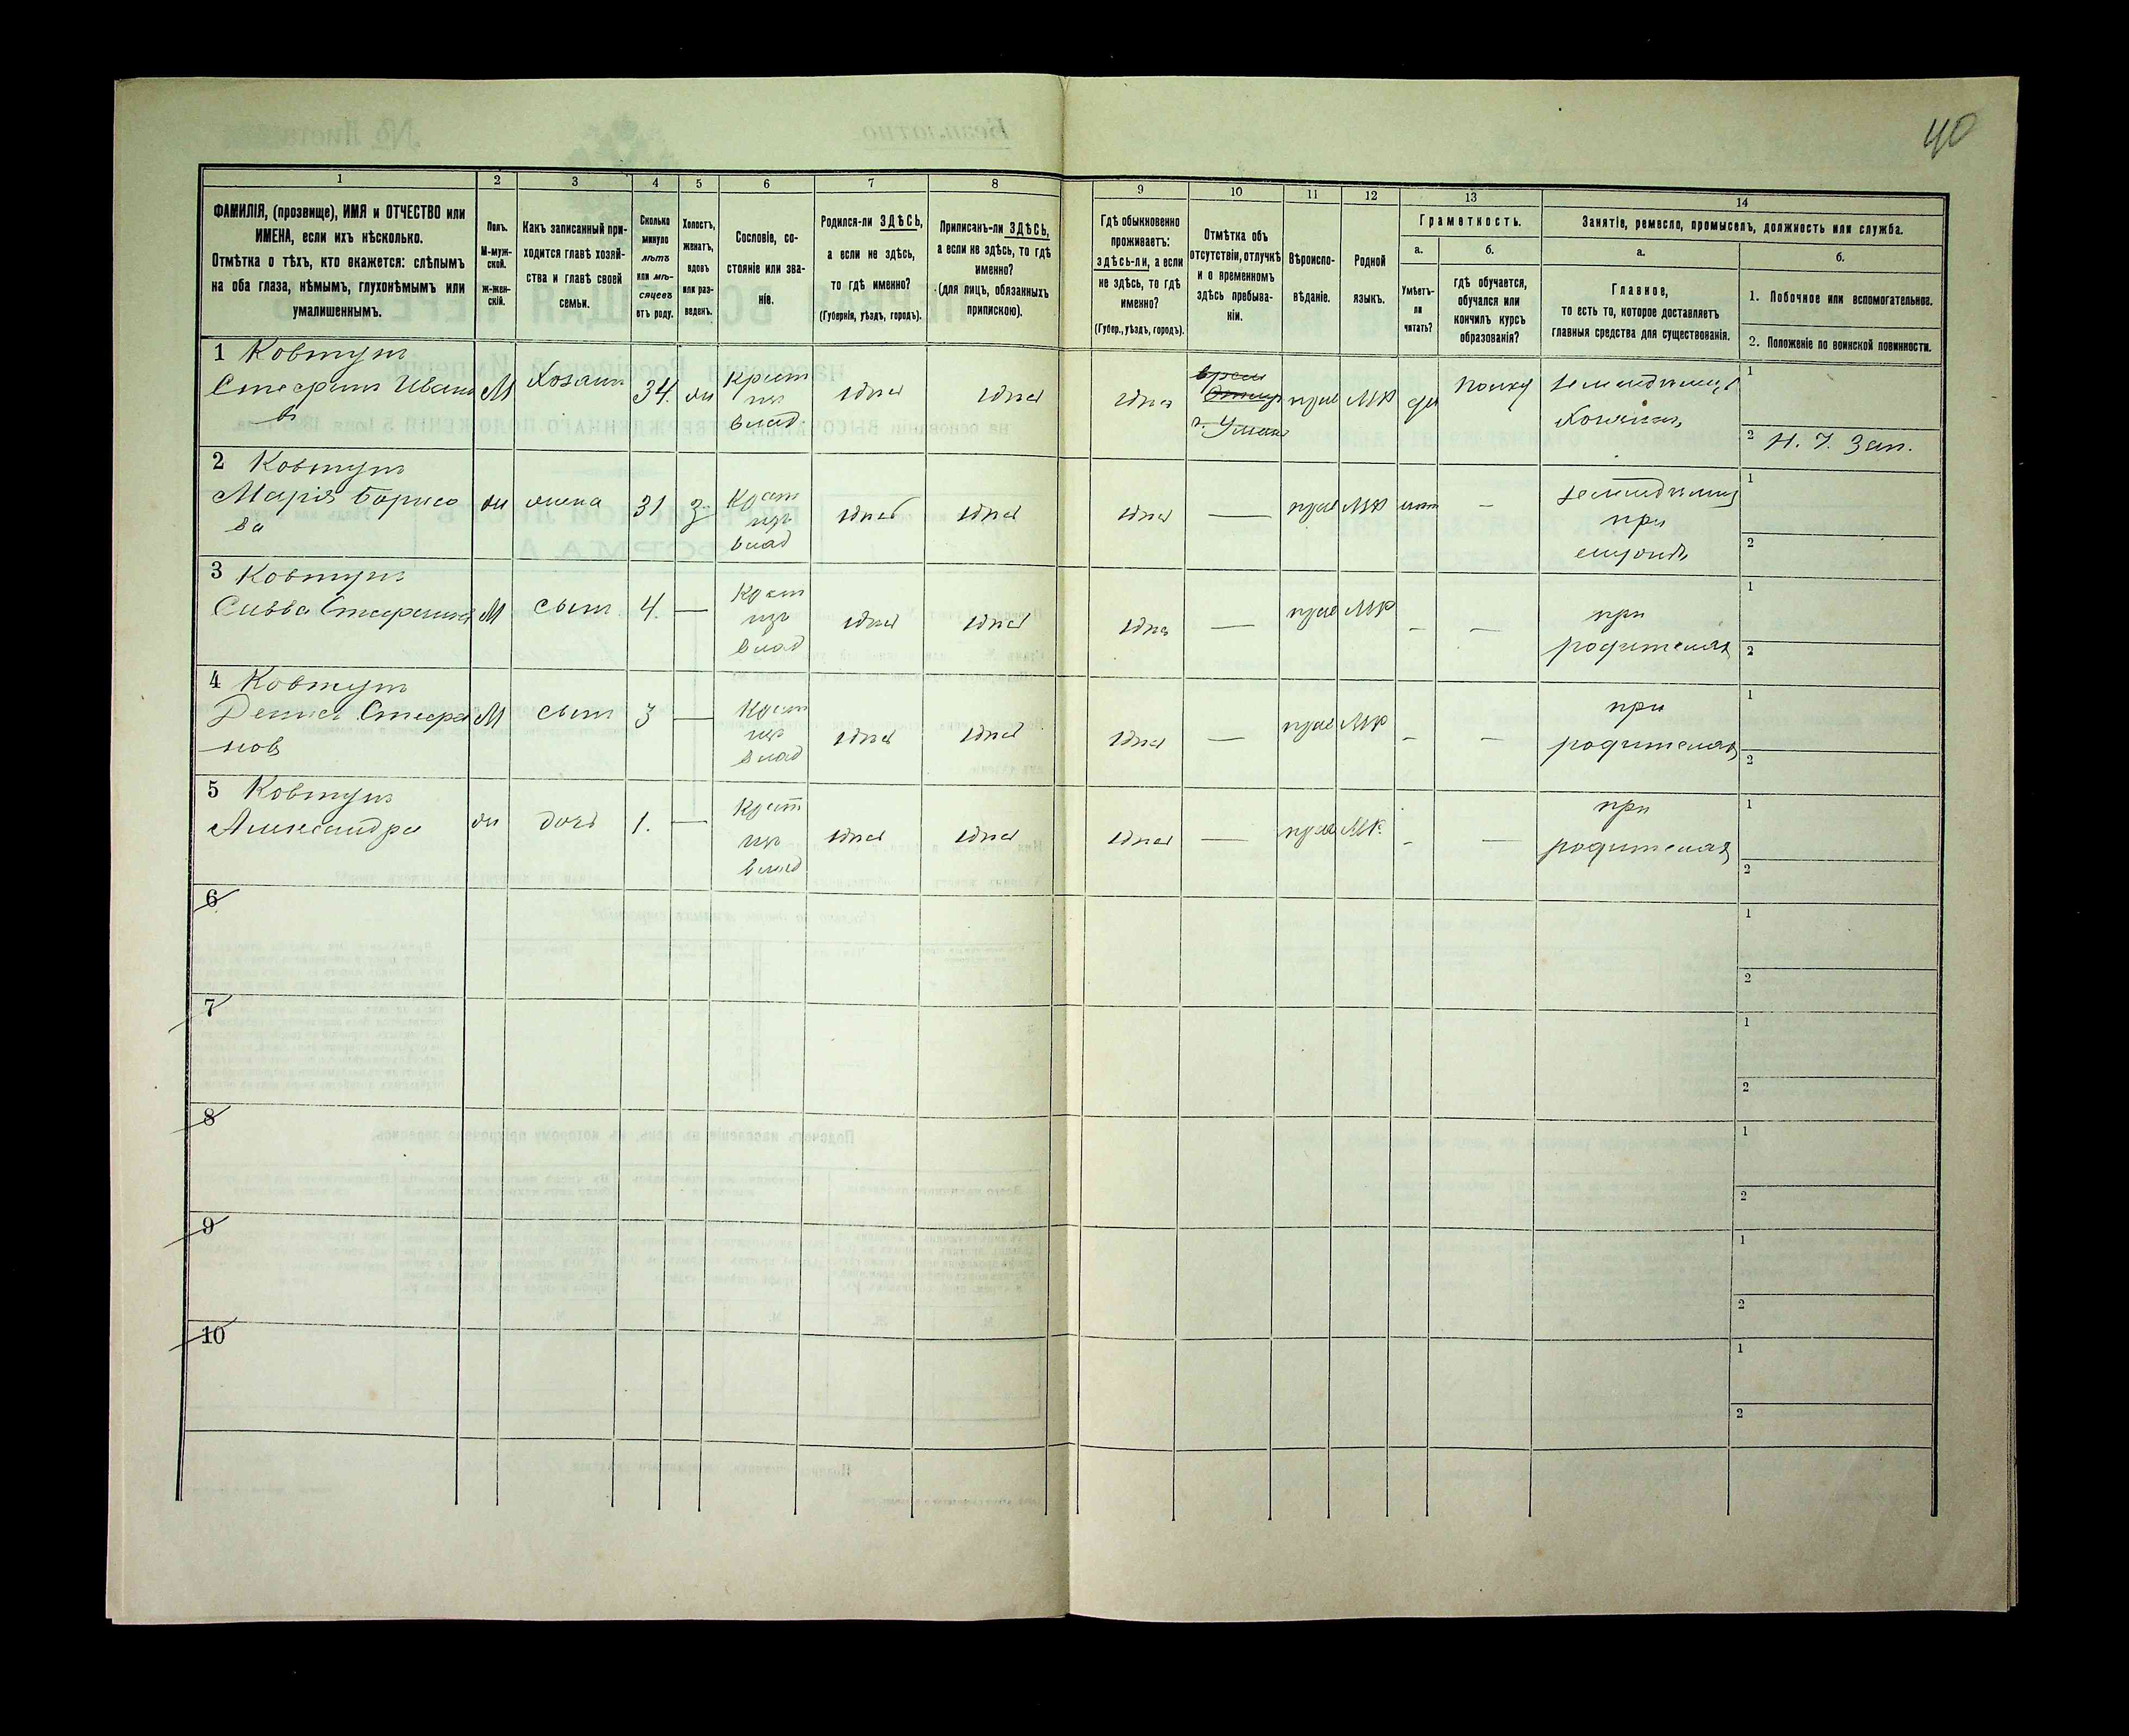 40
1 2 3 4 5 6 7 8 9 10 11 12 13 14
ФАМИЛІЯ, (прозвище), ИМЯ и ОТЧЕСТВО или
ИМЕНА, если ихъ нѣсколько.
Отмѣтка о тѣхъ, кто окажется: слѣпымъ
на оба глаза, нѣмымъ, глухонѣмымъ или
умалишеннымъ.
Полъ.
М-муж-
ской.
ж-жен-
скій.
Какъ записанный при-
ходится главѣ хозяй-
ства и главѣ своей
семьи.
Сколько
минуло
лѣтъ
или мѣ-
сяцевъ
отъ роду.
Холостъ,
женатъ,
вдовъ
или раз-
веденъ.
Сословіе, со-
стояніе или зва-
ніе.
Родился-ли ЗДѢСЬ,
а если не здѣсь,
то гдѣ именно?
(Губернія, уѣздъ, городъ).
Приписанъ-ли ЗДѢСЬ,
а если не здѣсь, то гдѣ
именно?
(для лицъ, обязанныхъ
припискою).
Гдѣ обыкновенно
проживаетъ:
здѣсь-ли, а если
не здѣсь, то гдѣ
именно?
(Губер., уѣздъ, городъ).
Отмѣтка объ
отсутствіи, отлучкѣ
и о временномъ
здѣсь пребыва-
ніи.
Вѣроиспо-
вѣданіе.
Родной
языкъ.
Грамотность.
а.
Умѣетъ-
ли
читать?
б.
гдѣ обучается,
обучался или
кончилъ курсъ
образованія?
Занятіе, ремесло, промыселъ, должность или служба.
а.
Главное,
то есть то, которое доставляетъ
главныя средства для существованія.
б.
1. Побочное или вспомогательное.
2. Положеніе по воинской повинности.
1 Ковтунъ
Стефанъ Ивано
въ
М Хозяин 34. жн
Крест
изъ
влад
здесь здесь здесь
г. Умань
прав МР
полку
земледелец
Хозяинъ
1
2 Н. Ч. Зап.
2 Ковтунъ
Марія Борисо
ва
жн жена 31 З.
Крест
изъ
влад
здесь здесь здесь — прав МР нет -
земледелец
при
1
2
3 Ковтунъ
Савва Стефанов
М сынъ 4. —
Крест
изъ
влад
здесь здесь здесь — прав МР - —
при
родителях
1
2
4 Ковтунъ
Денис Стефа
нов
М сынъ 3 —
Крест
изъ
влад
здесь здесь здесь — прав МР - —
при
родителях
1
2
5 Ковтунъ
Александра
жн дочь 1. —
Крест
изъ
влад
здесь здесь здесь — прав МР. - —
при
родителях
1
2
6
1
2
7
1
2
8
1
2
9
1
2
10
1
2